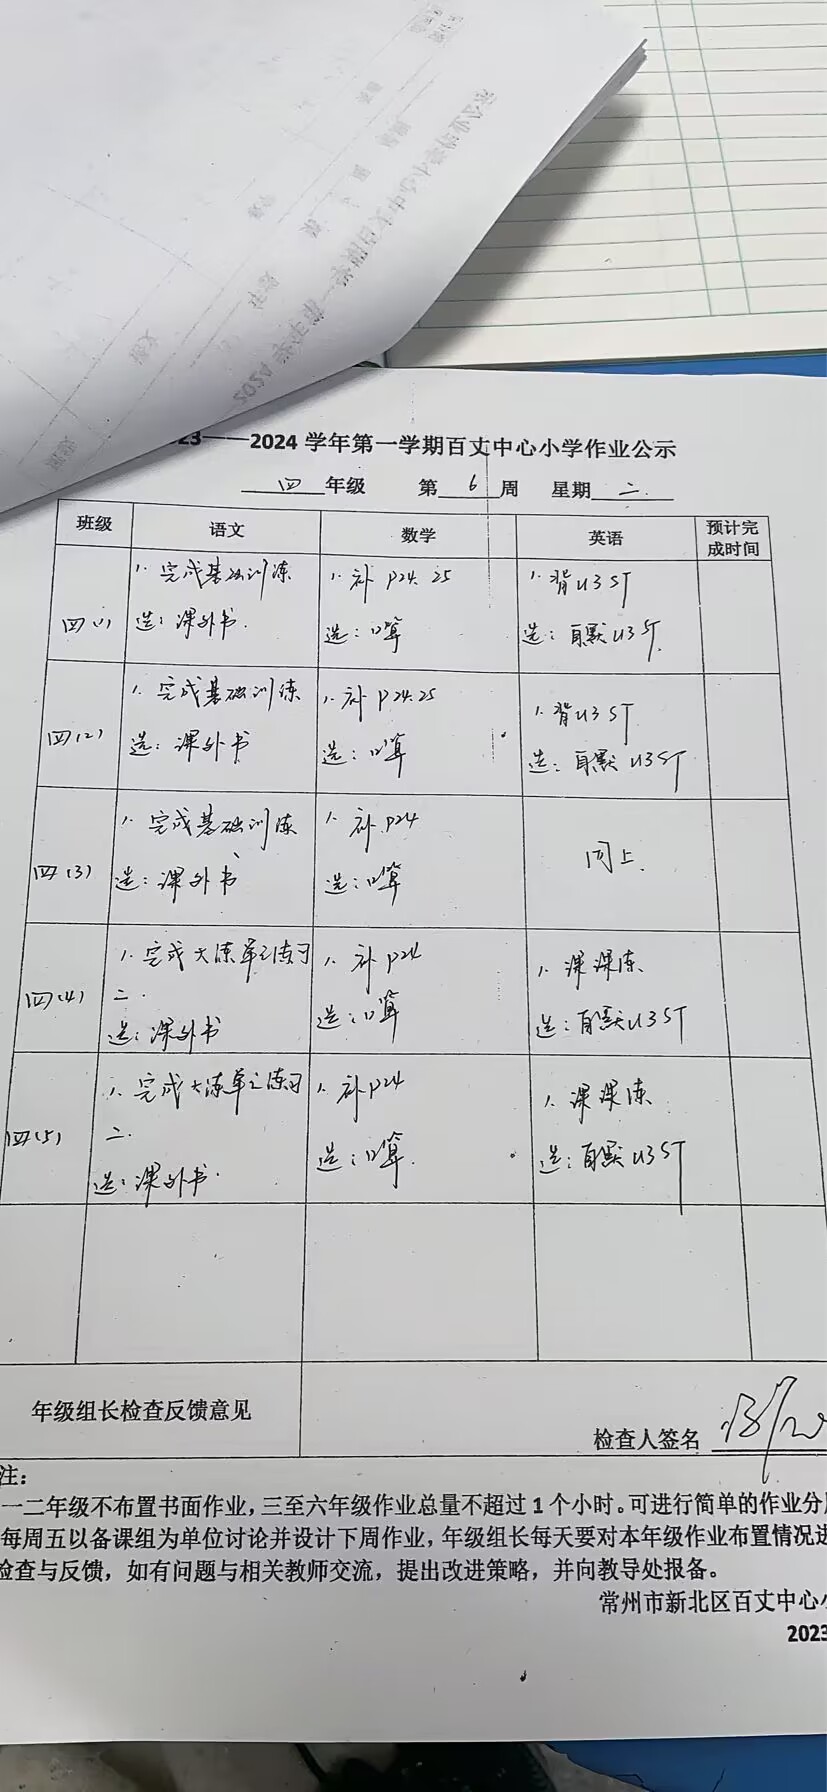 23——2024 学年第一学期百丈中心小学作业公示
四 年级 第 6 周 星期 二
班级 语文 数学 英语 预计完成时间
四(1)
1. 完成基础训练
选：课外书.
1. 补 P24. 25
选：口算
1. 背U3 ST
选：自默 U3 ST.
四(2)
1. 完成基础训练
选：课外书
1. 补 P24.25
选：口算
1. 背U3 ST
选：自默 U3 ST
四(3)
1. 完成基础训练
选：课外书
1. 补 P24
选：口算
同上.
四(4)
1. 完成大练单元练习
二.
选：课外书
1. 补 P24
选：口算
1. 课课练
选：自默 U3 ST
四(5)
1. 完成大练单元练习
二.
选：课外书.
1. 补 P24
选：口算.
1. 课课练
选：自默 U3 ST
年级组长检查反馈意见
检查人签名
注：
一二年级不布置书面作业，三至六年级作业总量不超过 1 个小时。可进行简单的作业分
每周五以备课组为单位讨论并设计下周作业，年级组长每天要对本年级作业布置情况进
检查与反馈，如有问题与相关教师交流，提出改进策略，并向教导处报备。
常州市新北区百丈中心小
2023